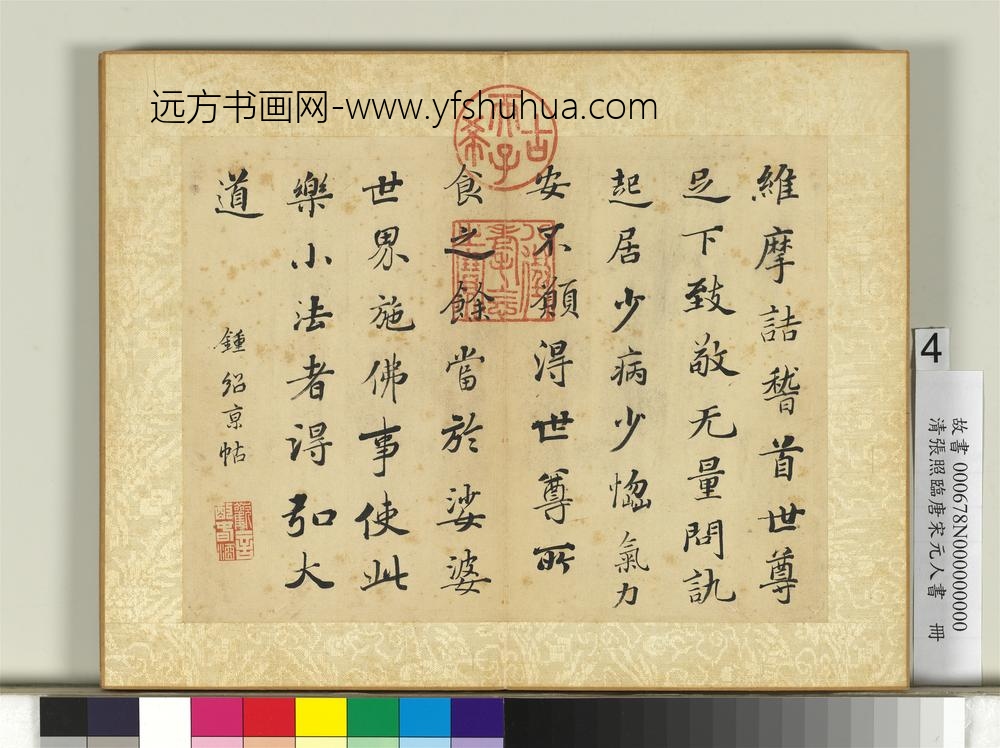 远方书画网-www.yfshuhua.com
維摩詰稽首世尊
足下致敬无量問訊
起居少病少惱氣力
安不願得世尊所
食之餘當於娑婆
世界施佛事使此
樂小法者得弘大
道
鍾紹京帖
古希天子
4
故書 000678N000000000
清張照臨唐宋元人書 冊